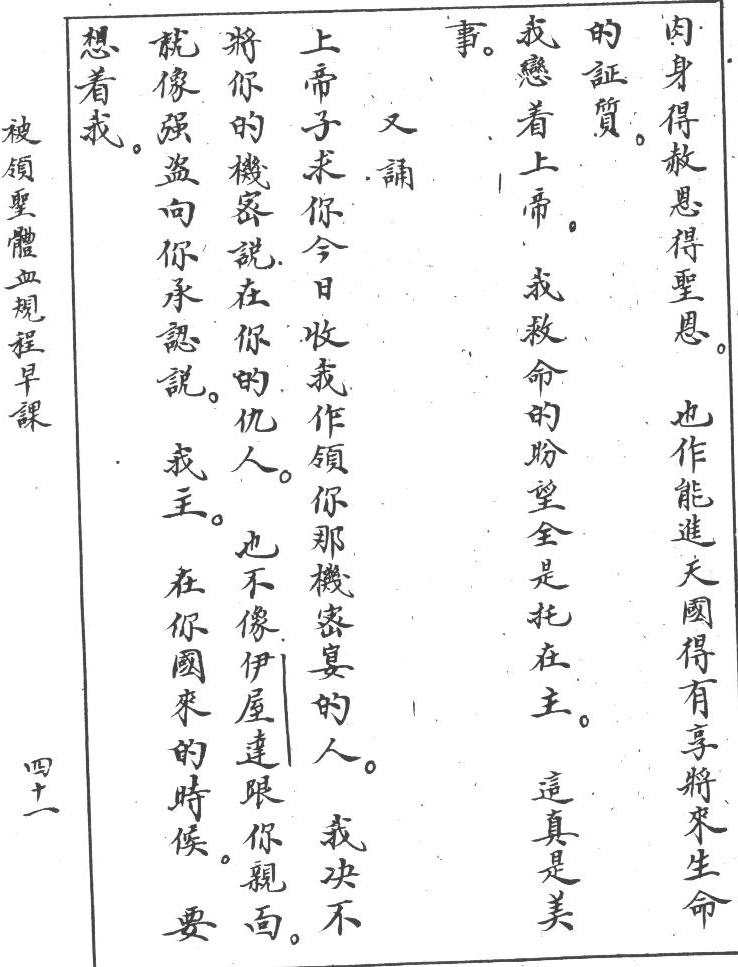 肉身得赦恩得聖恩。 也作能進天國得有享將來生命
的証質。
我戀着上帝。 我救命的盼望全是托在主。 這真是美
事。
又誦
上帝子求你今日收我作領你那機密宴的人。 我决不
將你的機密説在你的仇人。 也不像伊屋達跟你親面。
就像强盗向你承認説。 我主。 在你國來的時候。 要
想着我。
被領聖體血規程早課
四十一